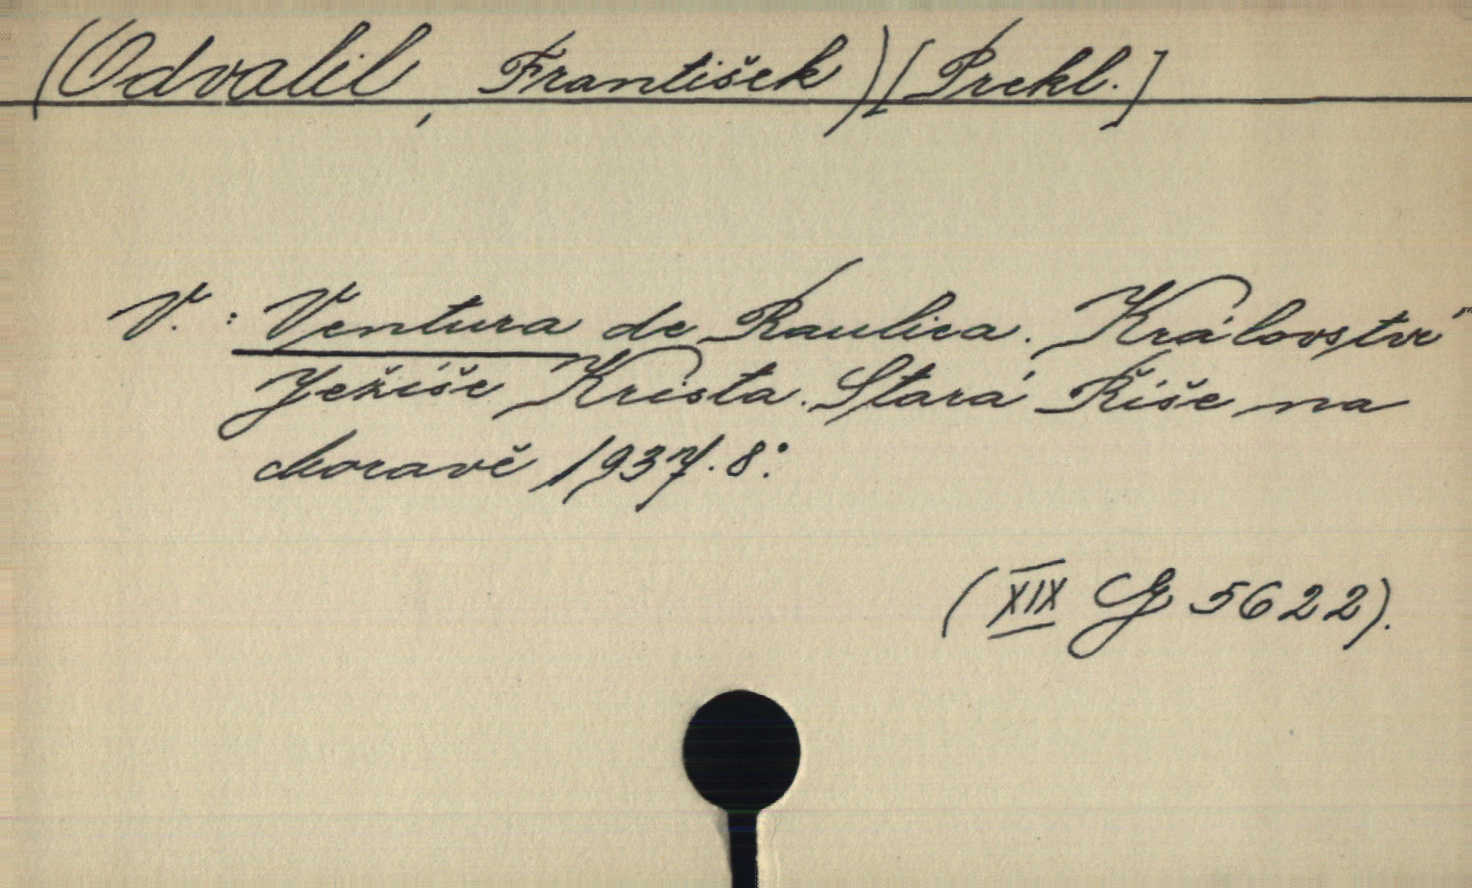 (Odvalil, František) [Prekl.]
V.: Ventura de Raulica. Království
Ježíše Krista. Stará Říše na
Moravě 1937. 8°.
(XIX G 5622).